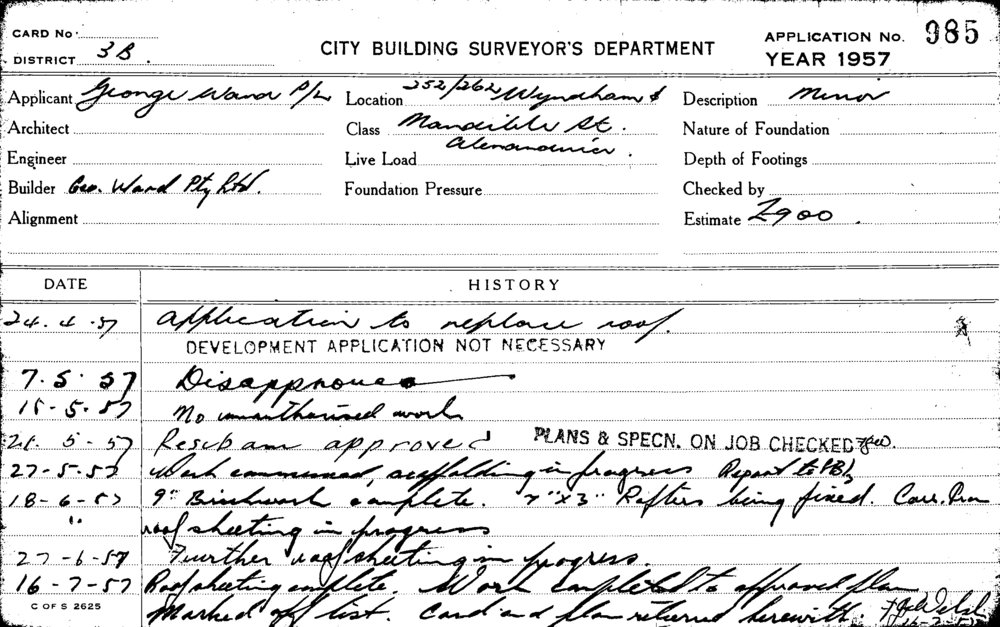 CARD No.
CITY BUILDING SURVEYOR'S DEPARTMENT
APPLICATION No. 985
DISTRICT 3B.
YEAR 1957
Applicant George Ward P/L Location 252/262 Wyndham & Description Minor
Architect Class Mandible St. Nature of Foundation
Alexandria.
Engineer Live Load Depth of Footings
Builder Geo. Ward Pty Ltd. Foundation Pressure Checked by
Alignment Estimate £900.
DATE HISTORY
24.4.57 Application to replace roof.
DEVELOPMENT APPLICATION NOT NECESSARY
7.5.57 Disapproved
15-5-57 No unauthorised work
21.5-57 approved PLANS & SPECN. ON JOB CHECKED
27-5-57 Work commenced, scaffolding in progress Report to
18-6-57 9" Brickwork complete. 7"x3" Rafters being fixed. Corr.
" roof sheeting in progress
27-6-57 Further roof sheeting in progress.
16-7-57 Roof sheeting complete. Work completed to approved plan
C OF S 2625
Marked off list. Card and plan returned herewith.